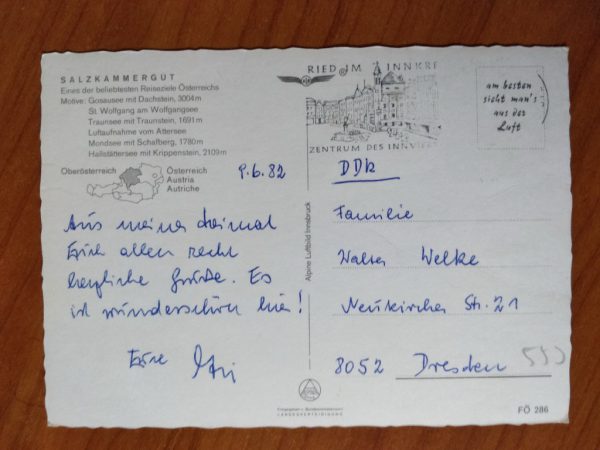 SALZKAMMERGUT
Eines der beliebtesten Reiseziele Österreichs
Motive: Gosausee mit Dachstein, 3004m
St. Wolfgang am Wolfgangsee
Traunsee mit Traunstein, 1691m
Luftaufnahme vom Attersee
Mondsee mit Schafberg, 1780m
Hallstättersee mit Krippenstein, 2109m
Oberösterreich
Österreich
Austria
Autriche
9.6.82
Aus meiner Heimat
Euch allen recht
herzliche Grüße. Es
ist wunderschön hier!
Eure
Alpine Luftbild Innsbruck
RIED IM INNKR
ZENTRUM DES INNVIER
am besten
sicht man's
aus der
Luft
DDR
Familie
Walter Welke
Neukircher Str. 21
8052 Dresden
LANDESVERTEIDIGUNG
FÖ 286